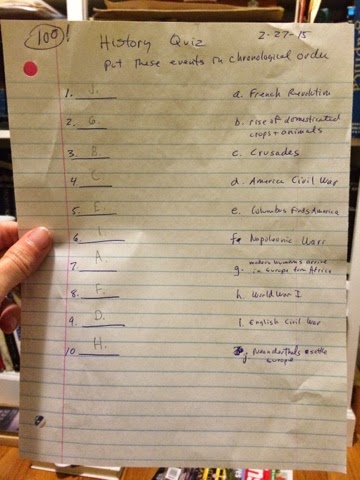 100!
History Quiz 2-27-15
Put these events in chronological order
1. J. a. French Revolution
2. G. b. rise of domesticated
crops + animals
3 B. c. Crusades
4 C d. America Civil War
5 E. e. Columbus finds America
6. I f. Napoleonic Wars
7. A. g. modern humans arrive
in Europe from Africa
8. F. h. World War I
9. D. i. English Civil War
10 H. j. Neanderthals settle
Europe